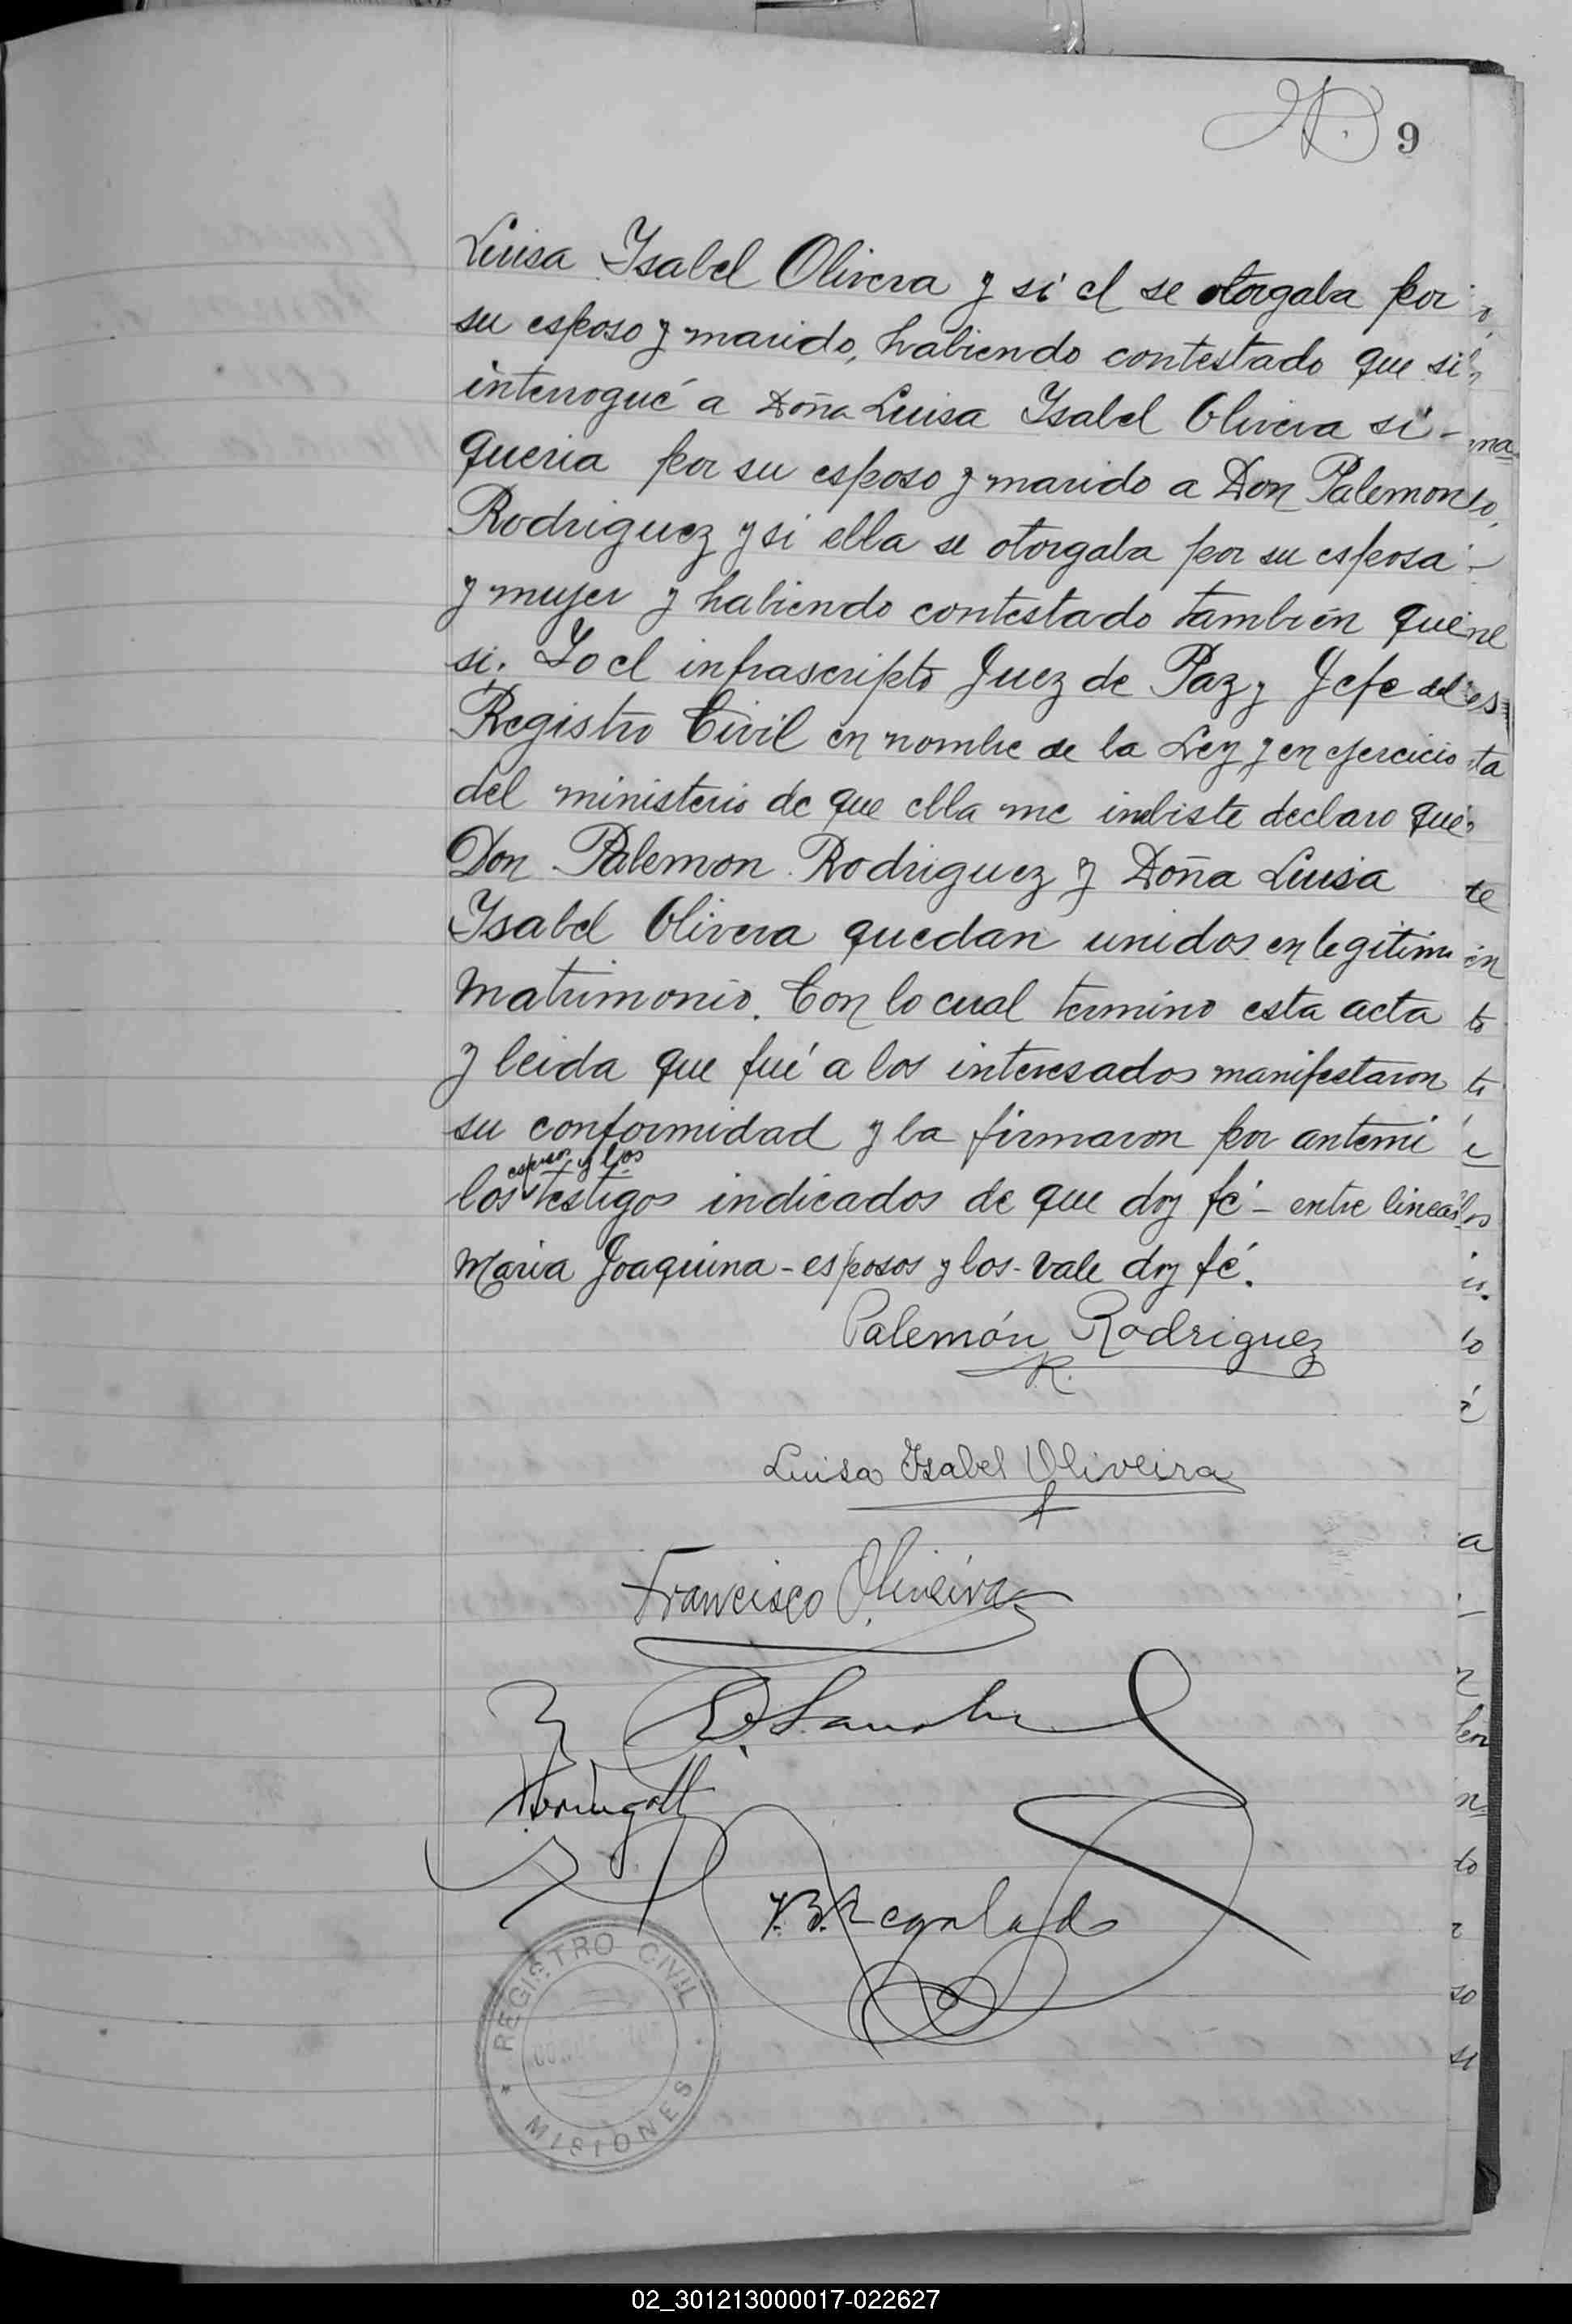 9
Luisa Ysabel Olivera y si el se otorgaba por
su esposo y marido, habiendo contestado que si
interrogué a Doña Luisa Ysabel Olivera si -
queria por su esposo y marido a Don Palemon
Rodriguez y si ella se otorgaba por su esposa
y mujer y habiendo contestado tambien que
si. Yo el infrascripto Juez de Paz y Jefe del
Registro Civil en nombre de la Ley y en ejercicio
del ministerio de que ella me inbiste declaro que
Don Palemon Rodriguez y Doña Luisa
Ysabel Olivera quedan unidos en legitimo
matrimonio. Con lo cual termino esta acta
y leida que fué a los interesados manifestaron
su conformidad y la firmaron por antemi
esposos y los
los testigos indicados de que doy fé - entre lineas
Maria Joaquina - esposos y los - vale doy fé.
Palemón Rodriguez
R.
Luisa Isabel Oliveira
Francisco Oliveira
REGISTRO CIVIL
MISIONES
02_301213000017-022627